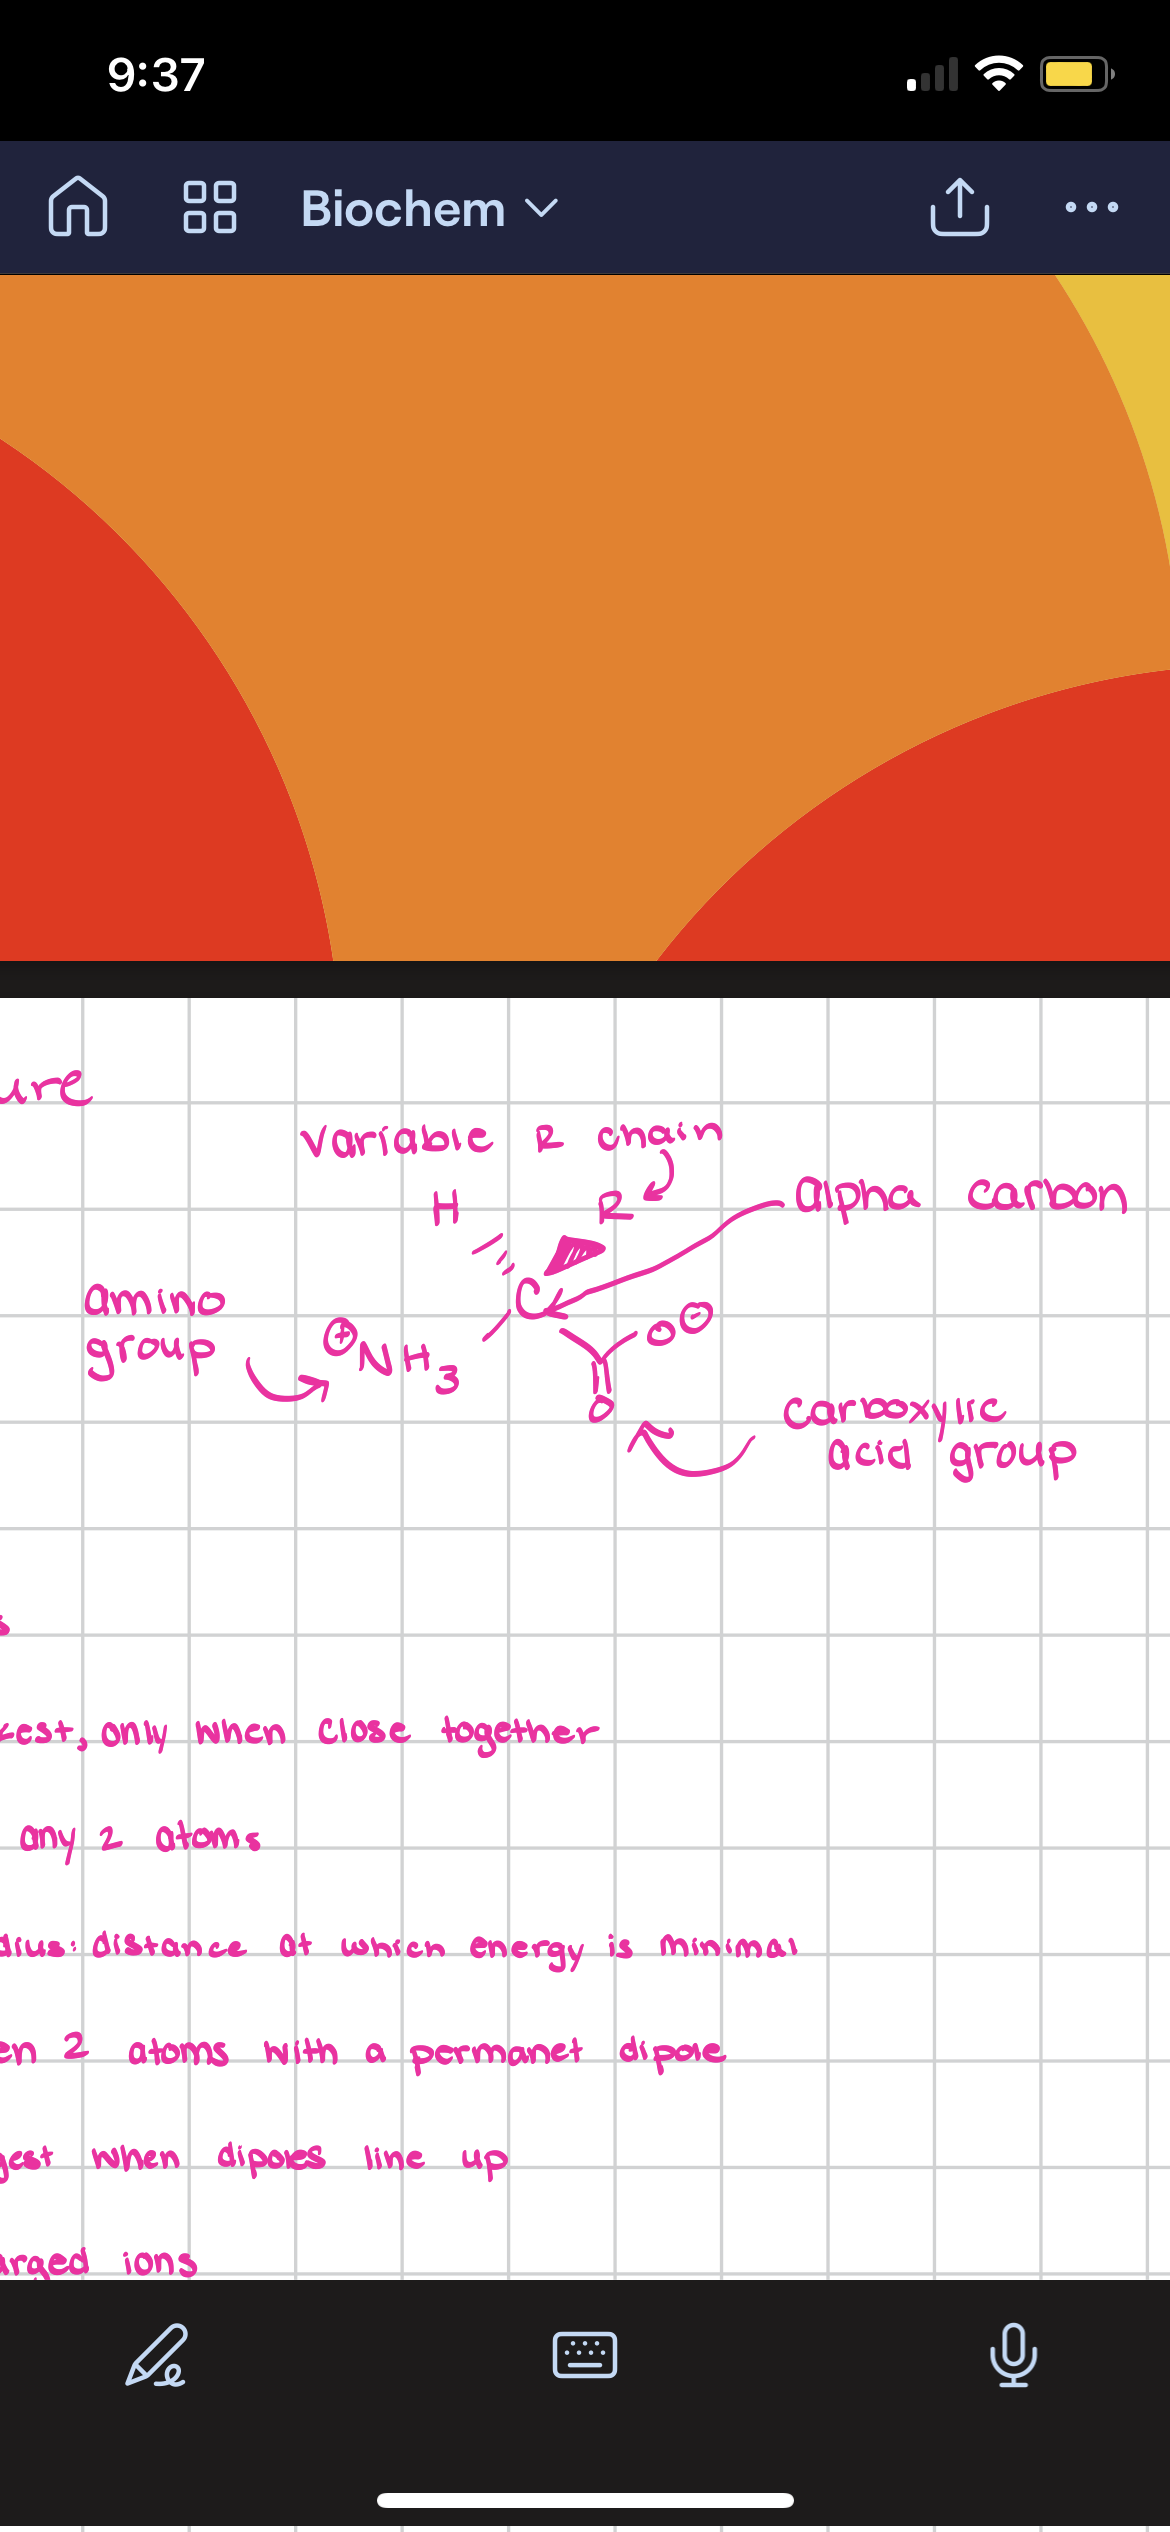 9:37
Biochem
ure
variable R chain
H R alpha carbon
C
amino
group
⊕NH3
O⊖
O
carboxylic
acid group
s
kest, only when close together
any 2 atoms
dius: distance at which energy is minimal
en 2 atoms with a permanet dipole
gest when dipoles line up
arged ions